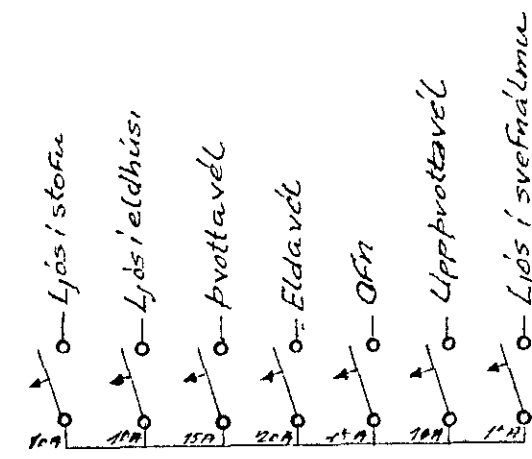 Ljós í stofu
Ljós í eldhúsi
Þvottavél
Eldavél
Ofn
Uppþvottavél
Ljós í svefnálmu
10A
10A
15A
20A
16A